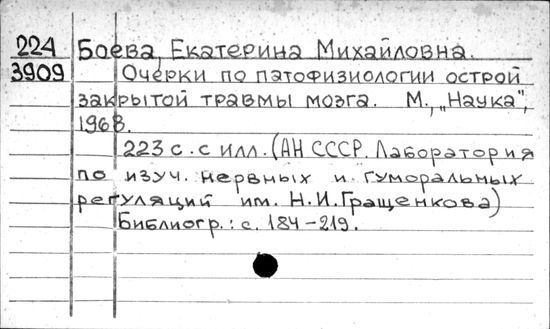 224 Боева, Екатерина Михайловна.
3909 Очерки по патофизиологии острой
закрытой травмы мозга. М., „Наука",
1968.
223 с. с илл. (АН СССР. Лаборатория
по изуч. нервных и гуморальных
регуляций им. Н.И.Гращенкова)
Библиогр.: с. 184-219.